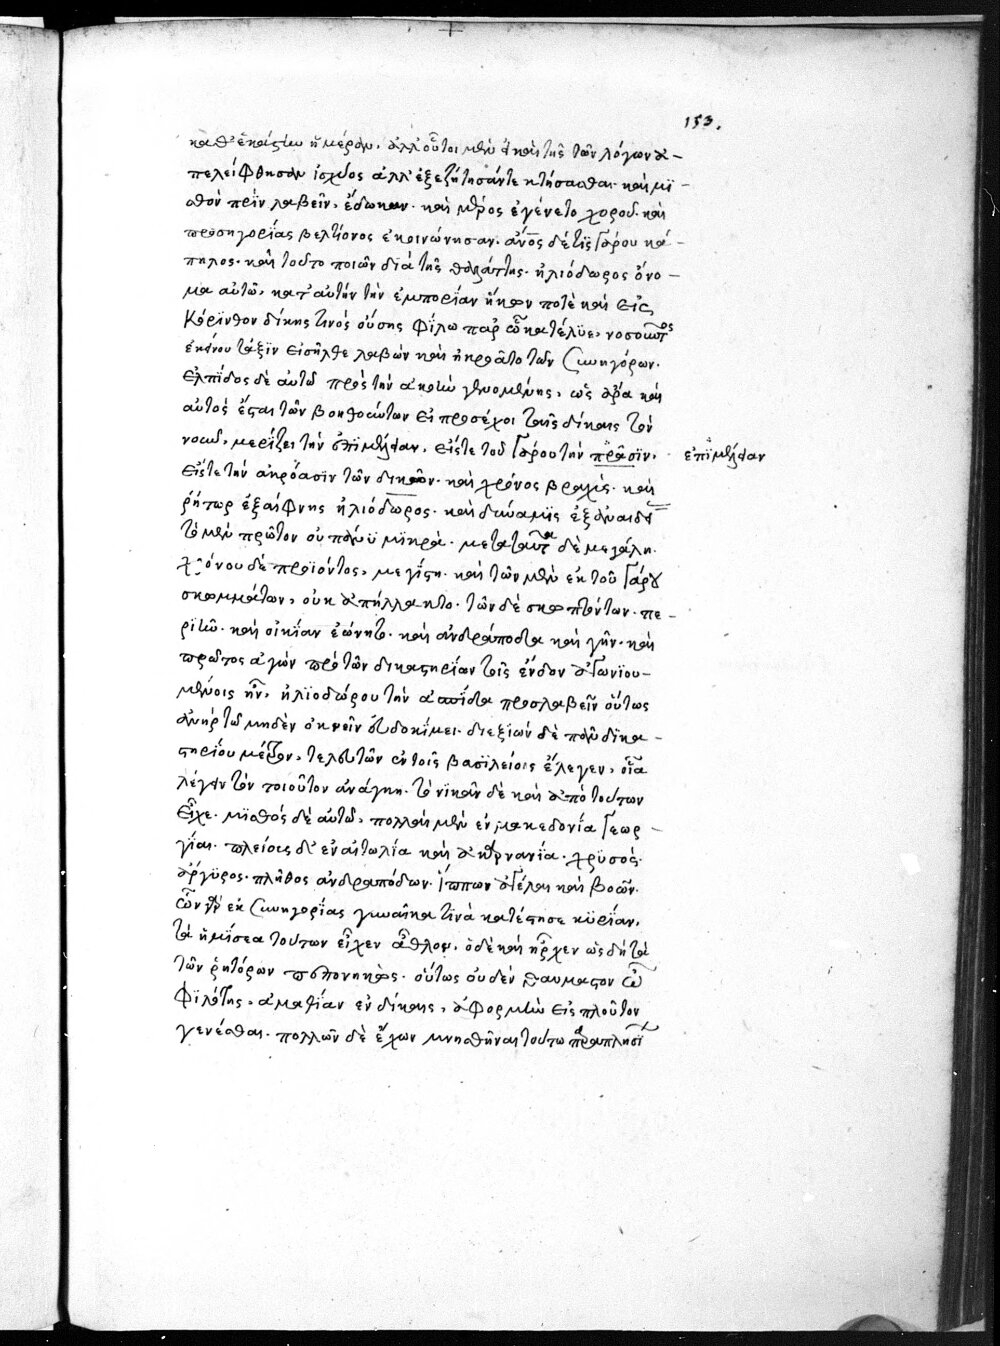 153.
καθ' ἑκάστην ἡμέραν. ἀλλ' οὗτοι μὲν καὶ τῆς τῶν λόγων ἀ-
πελείφθησαν ἰσχύος ἀλλ' ἐξεζήτησάν τε κτήσασθαι. καὶ μι-
σθὸν πρὶν λαβεῖν, ἔδωκαν. καὶ μέρος ἐγένετο χοροῦ. καὶ
προσηγορίας βελτίονος ἐκοινώνησαν. ἀνος δέ τις γάρου κά-
πηλος. καὶ τοῦτο ποιῶν διὰ τῆς θαλάττης. ἡλιόδωρος ὄνο-
μα αὐτῶ. κατ' αὐτὴν τὴν ἐμπορίαν ἧκεν ποτὲ καὶ εἰς
Κόρινθον δίκης τινὸς οὔσης φίλω παρ' ᾧ κατέλυε, νοσοῦντος
ἐκείνου τάξιν εἰσῆλθε λαβὼν καὶ ἠκροᾶτο τῶν συνηγόρων.
ἐλπίδος δὲ αὐτῶ πρὸς τὴν ἀκοὴν γενομένης, ὡς ἄρα καὶ
αὐτὸς ἔσται τῶν βοηθούντων εἰ προσέχοι ταῖς δίκαις τὸν
νοῦν, μερίζει τὴν ἐπιμέλειαν, εἴς τε τοῦ γάρου τὴν πρᾶσιν.
ἐπιμέλειαν
εἴς τε τὴν ἀκρόασιν τῶν δικῶν. καὶ χρόνος βραχὺς. καὶ
ῥήτωρ ἐξαίφνης ἡλιόδωρος. καὶ δύναμις ἐξ ἀναιδείας
τὸ μὲν πρῶτον οὐ πολὺ μικρὰ. μετὰ ταῦτα δὲ μεγάλη.
χρόνου δὲ προϊόντος, μεγίστη. καὶ τῶν μὲν ἐκ τοῦ γάρου
σκωμμάτων, οὐκ ἀπήλλακτο. τῶν δὲ σκωπτόντων. πε-
ριῆν. καὶ οἰκίαν ἐώνητο. καὶ ἀνδράποδα καὶ γῆν. καὶ
πρῶτος ἀγὼν πρὸ τῶν δικαστηρίων τοῖς ἔνδον ἀγωνιου-
μένοις ἦν, ἡλιοδώρου τὴν ἀσπίδα προσλαβεῖν οὕτως
ἀνὴρ τῶ μηδὲν ὀκνεῖν εὐδοκίμει. διεξιὼν δὲ πολὺ δικα-
στηρίου μέρος, τελευτῶν ἐν τοῖς βασιλείοις ἔλεγεν, οἷα
λέγειν τὸν τοιοῦτον ἀνάγκη. τὸ νικᾶν δὲ καὶ ἀπὸ τούτων
εἶχε. μισθὸς δὲ αὐτῶ, πολλαὶ μὲν ἐν μακεδονία γεωρ-
γίαι. πλείους δ' ἐν αἰτωλία καὶ ἀκαρνανία. χρυσὸς.
ἄργυρος. πλῆθος ἀνδραπόδων. ἵππων ἀγέλαι καὶ βοῶν.
ὧν γὰρ ἐκ συνηγορίας γυναῖκα τινὰ κατέστησε κυρίαν,
τὰ ἡμίσεα τούτων εἶχεν ἆθλον. ὁ δὲ καὶ ἦρχεν ὡς δὴ τὰ
τῶν ῥητόρων πεπονηκὼς. οὕτως οὐδὲν θαυμαστὸν ὦ
φιλότης, ἀμαθίαν ἐν δίκαις, ἀφορμὴν εἰς πλοῦτον
γενέσθαι. πολλῶν δὲ ἔχων μνησθῆναι τούτω παραπλησί